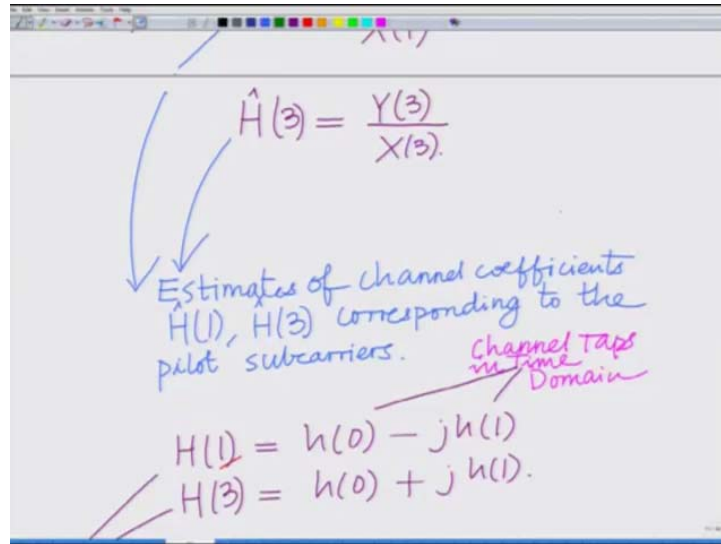 X(1)
Ĥ(3) = Y(3)
X(3).
Estimates of channel coefficients
Ĥ(1), Ĥ(3) corresponding to the
pilot subcarriers.
Channel Taps
in Time
Domain
H(1) = h(0) - jh(1)
H(3) = h(0) + jh(1).